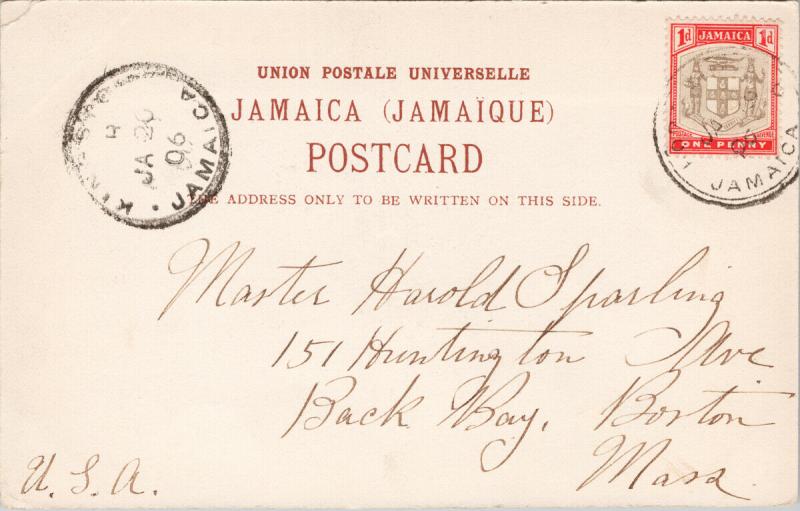 UNION POSTALE UNIVERSELLE
JAMAICA (JAMAÏQUE)
POSTCARD
THE ADDRESS ONLY TO BE WRITTEN ON THIS SIDE.
KINGSTON · JAMAICA
H
JA 26
06
1d JAMAICA 1d
POSTAGE REVENUE
ONE PENNY
JAMAICA
Master Harold Sparling
151 Huntington Ave
Back Bay, Boston
Mass
U. S. A.